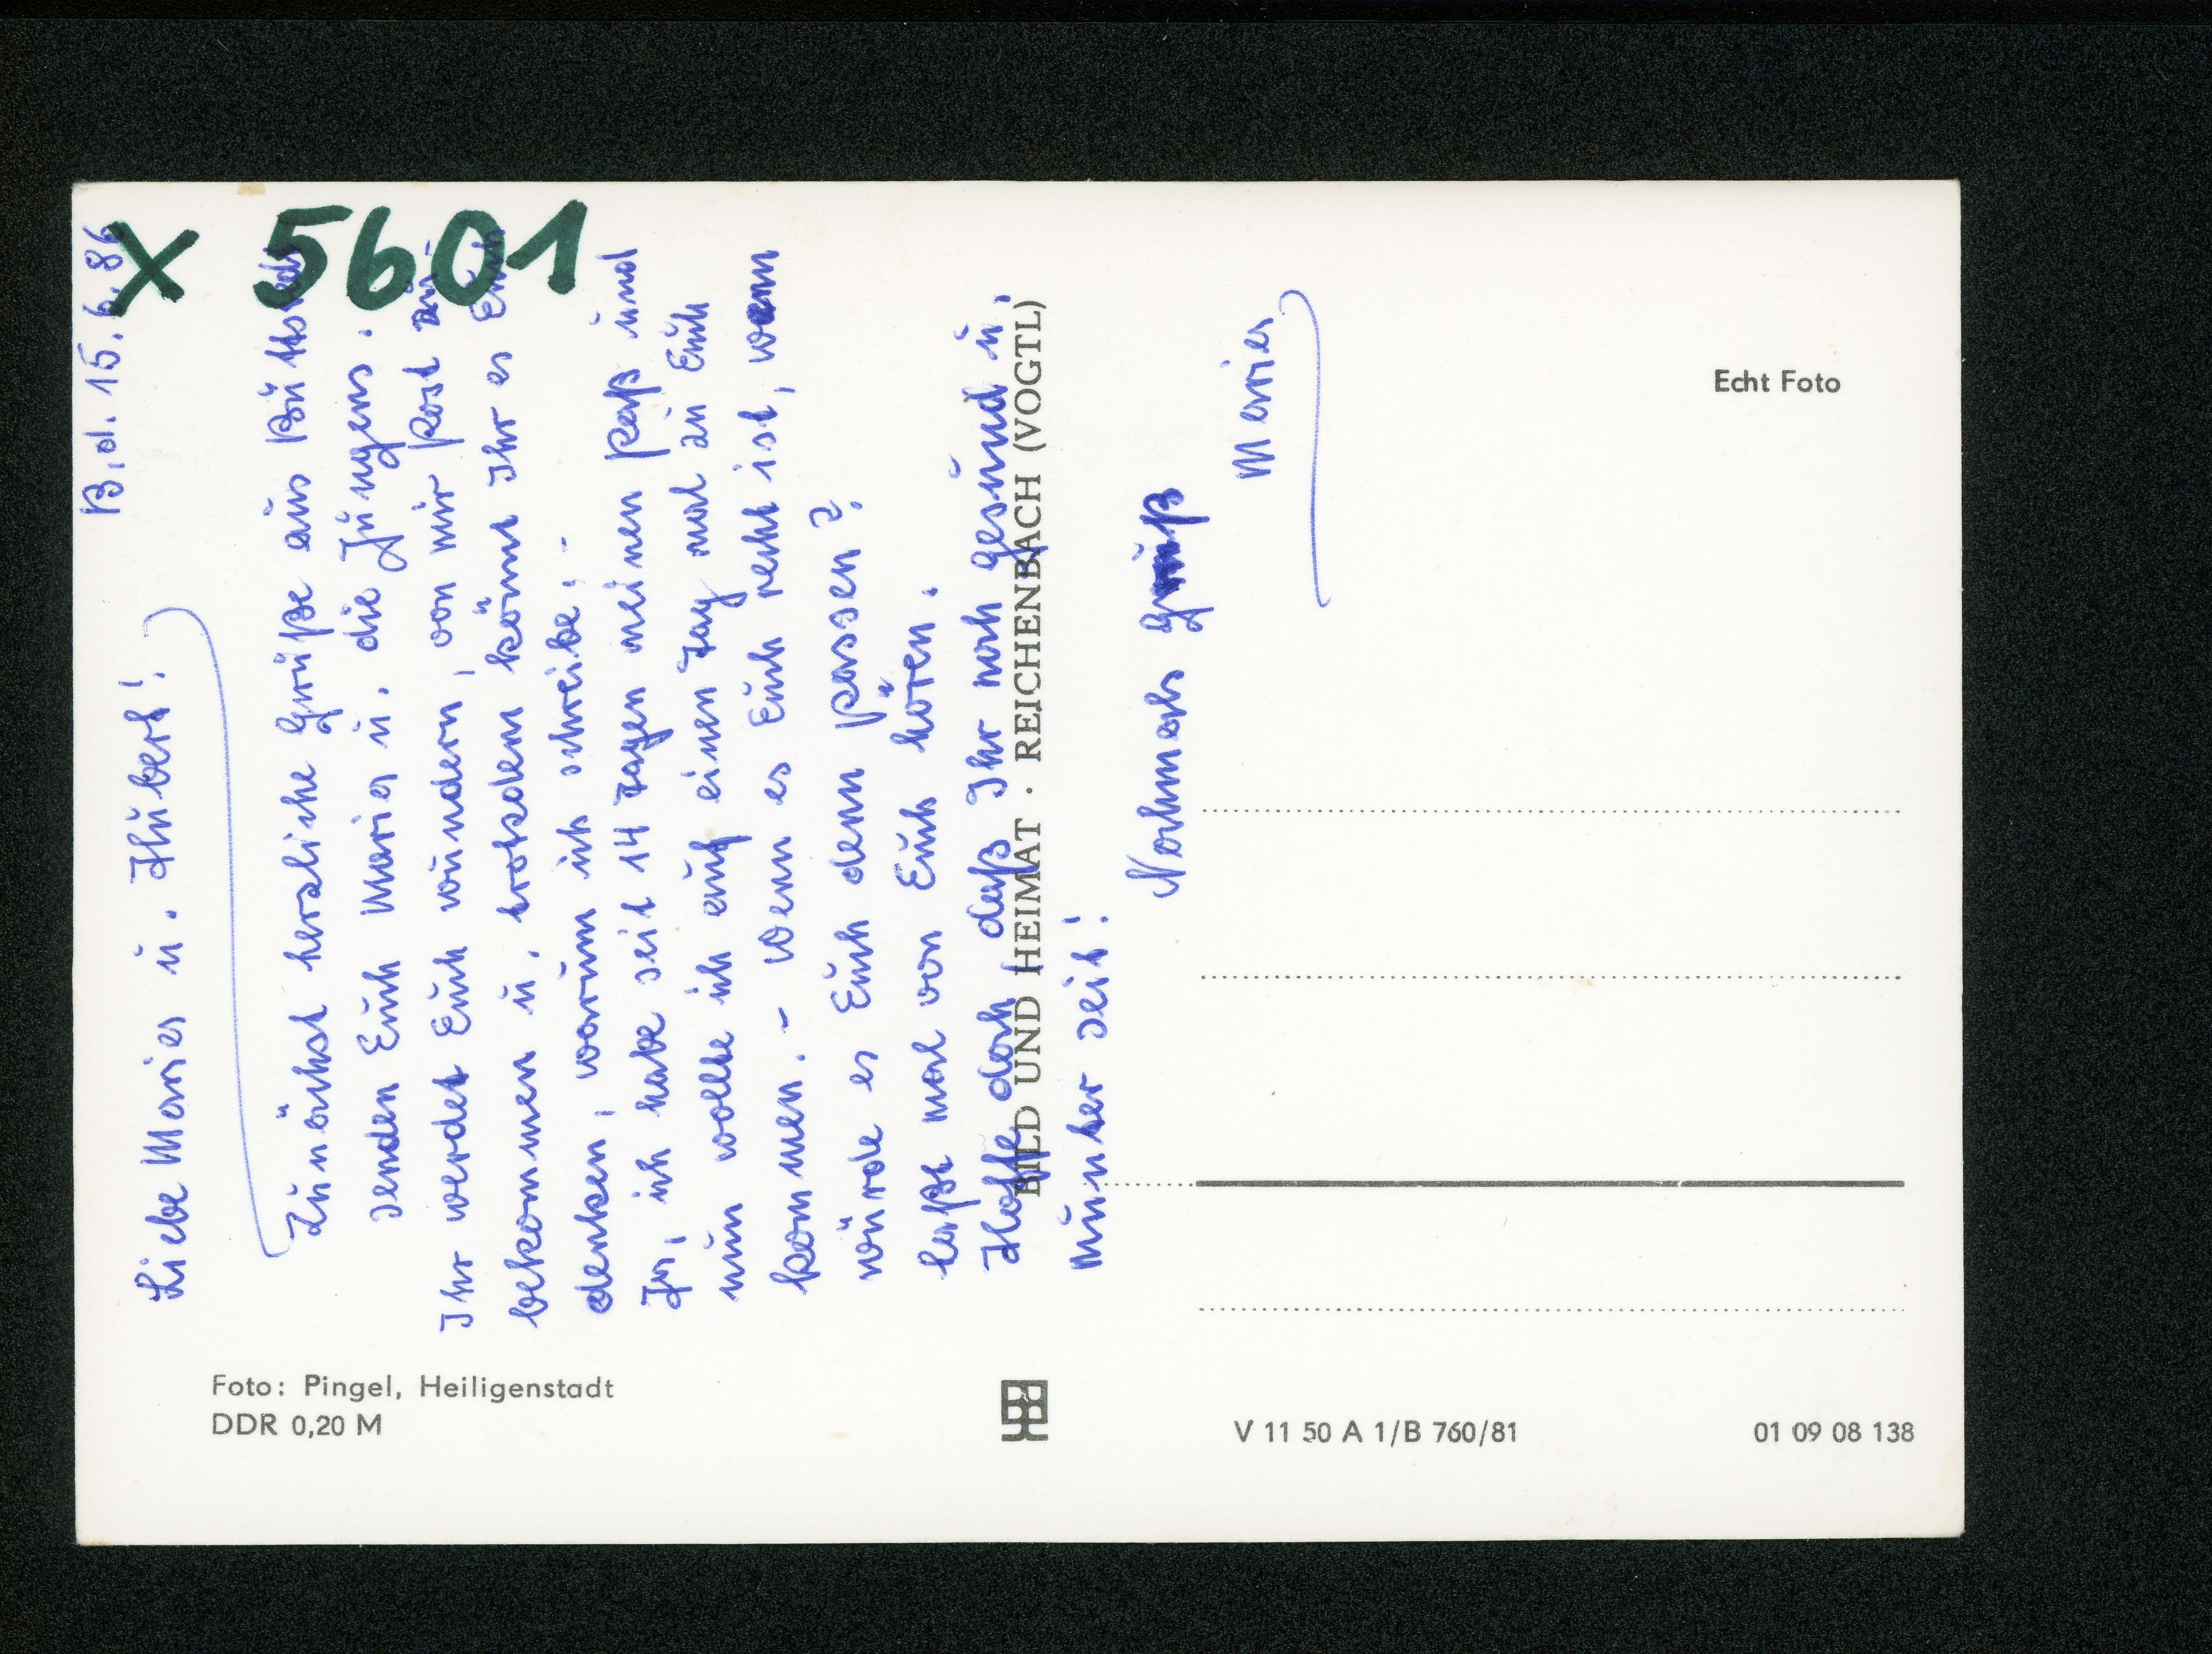 X 5601
B, d. 15.6.86
Liebe Maria u. Hubert!
Zunächst herzliche Grüße aus
senden Euch Maria u. die Jungens.
Ihr werdet Euch wundern, von mir Post zu
bekommen u. trotzdem könnt Ihr es Euch
denken, warum ich schreibe. -
Ja, ich habe seit 14 Tagen meinen Paß und
nun wollte ich auf einen Tag mal zu Euch
kommen. - Wenn es Euch recht ist, wann
würde es Euch denn passen?
Laßt mal von Euch hören.
Hoffe doch, daß Ihr noch gesund u.
munter seit!
Nochmals Gruß
Maria
BILD UND HEIMAT · REICHENBACH (VOGTL)
Echt Foto
Foto: Pingel, Heiligenstadt
DDR 0,20 M
V 11 50 A 1/B 760/81
01 09 08 138